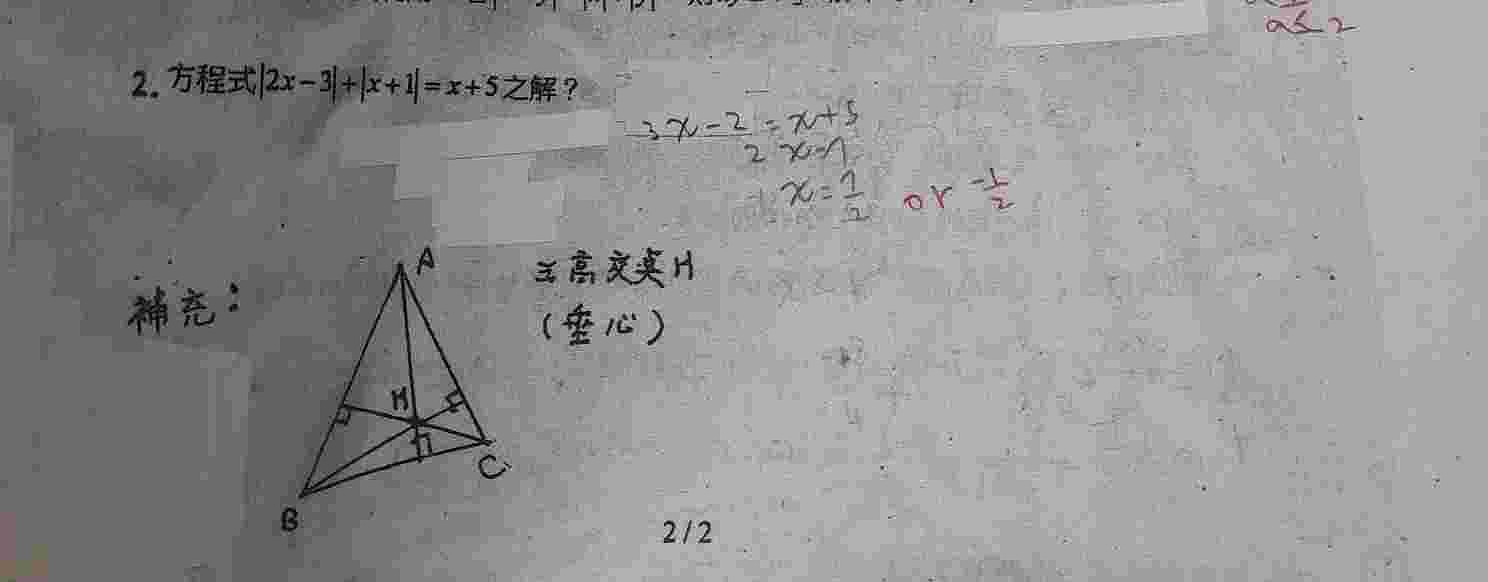 a≤2
2. 方程式|2x-3|+|x+1|=x+5之解?
3x-2=x+5
2x=7
x=7/2 or -1/2
補充:
A
三高交點H
(垂心)
H
C
B
2/2